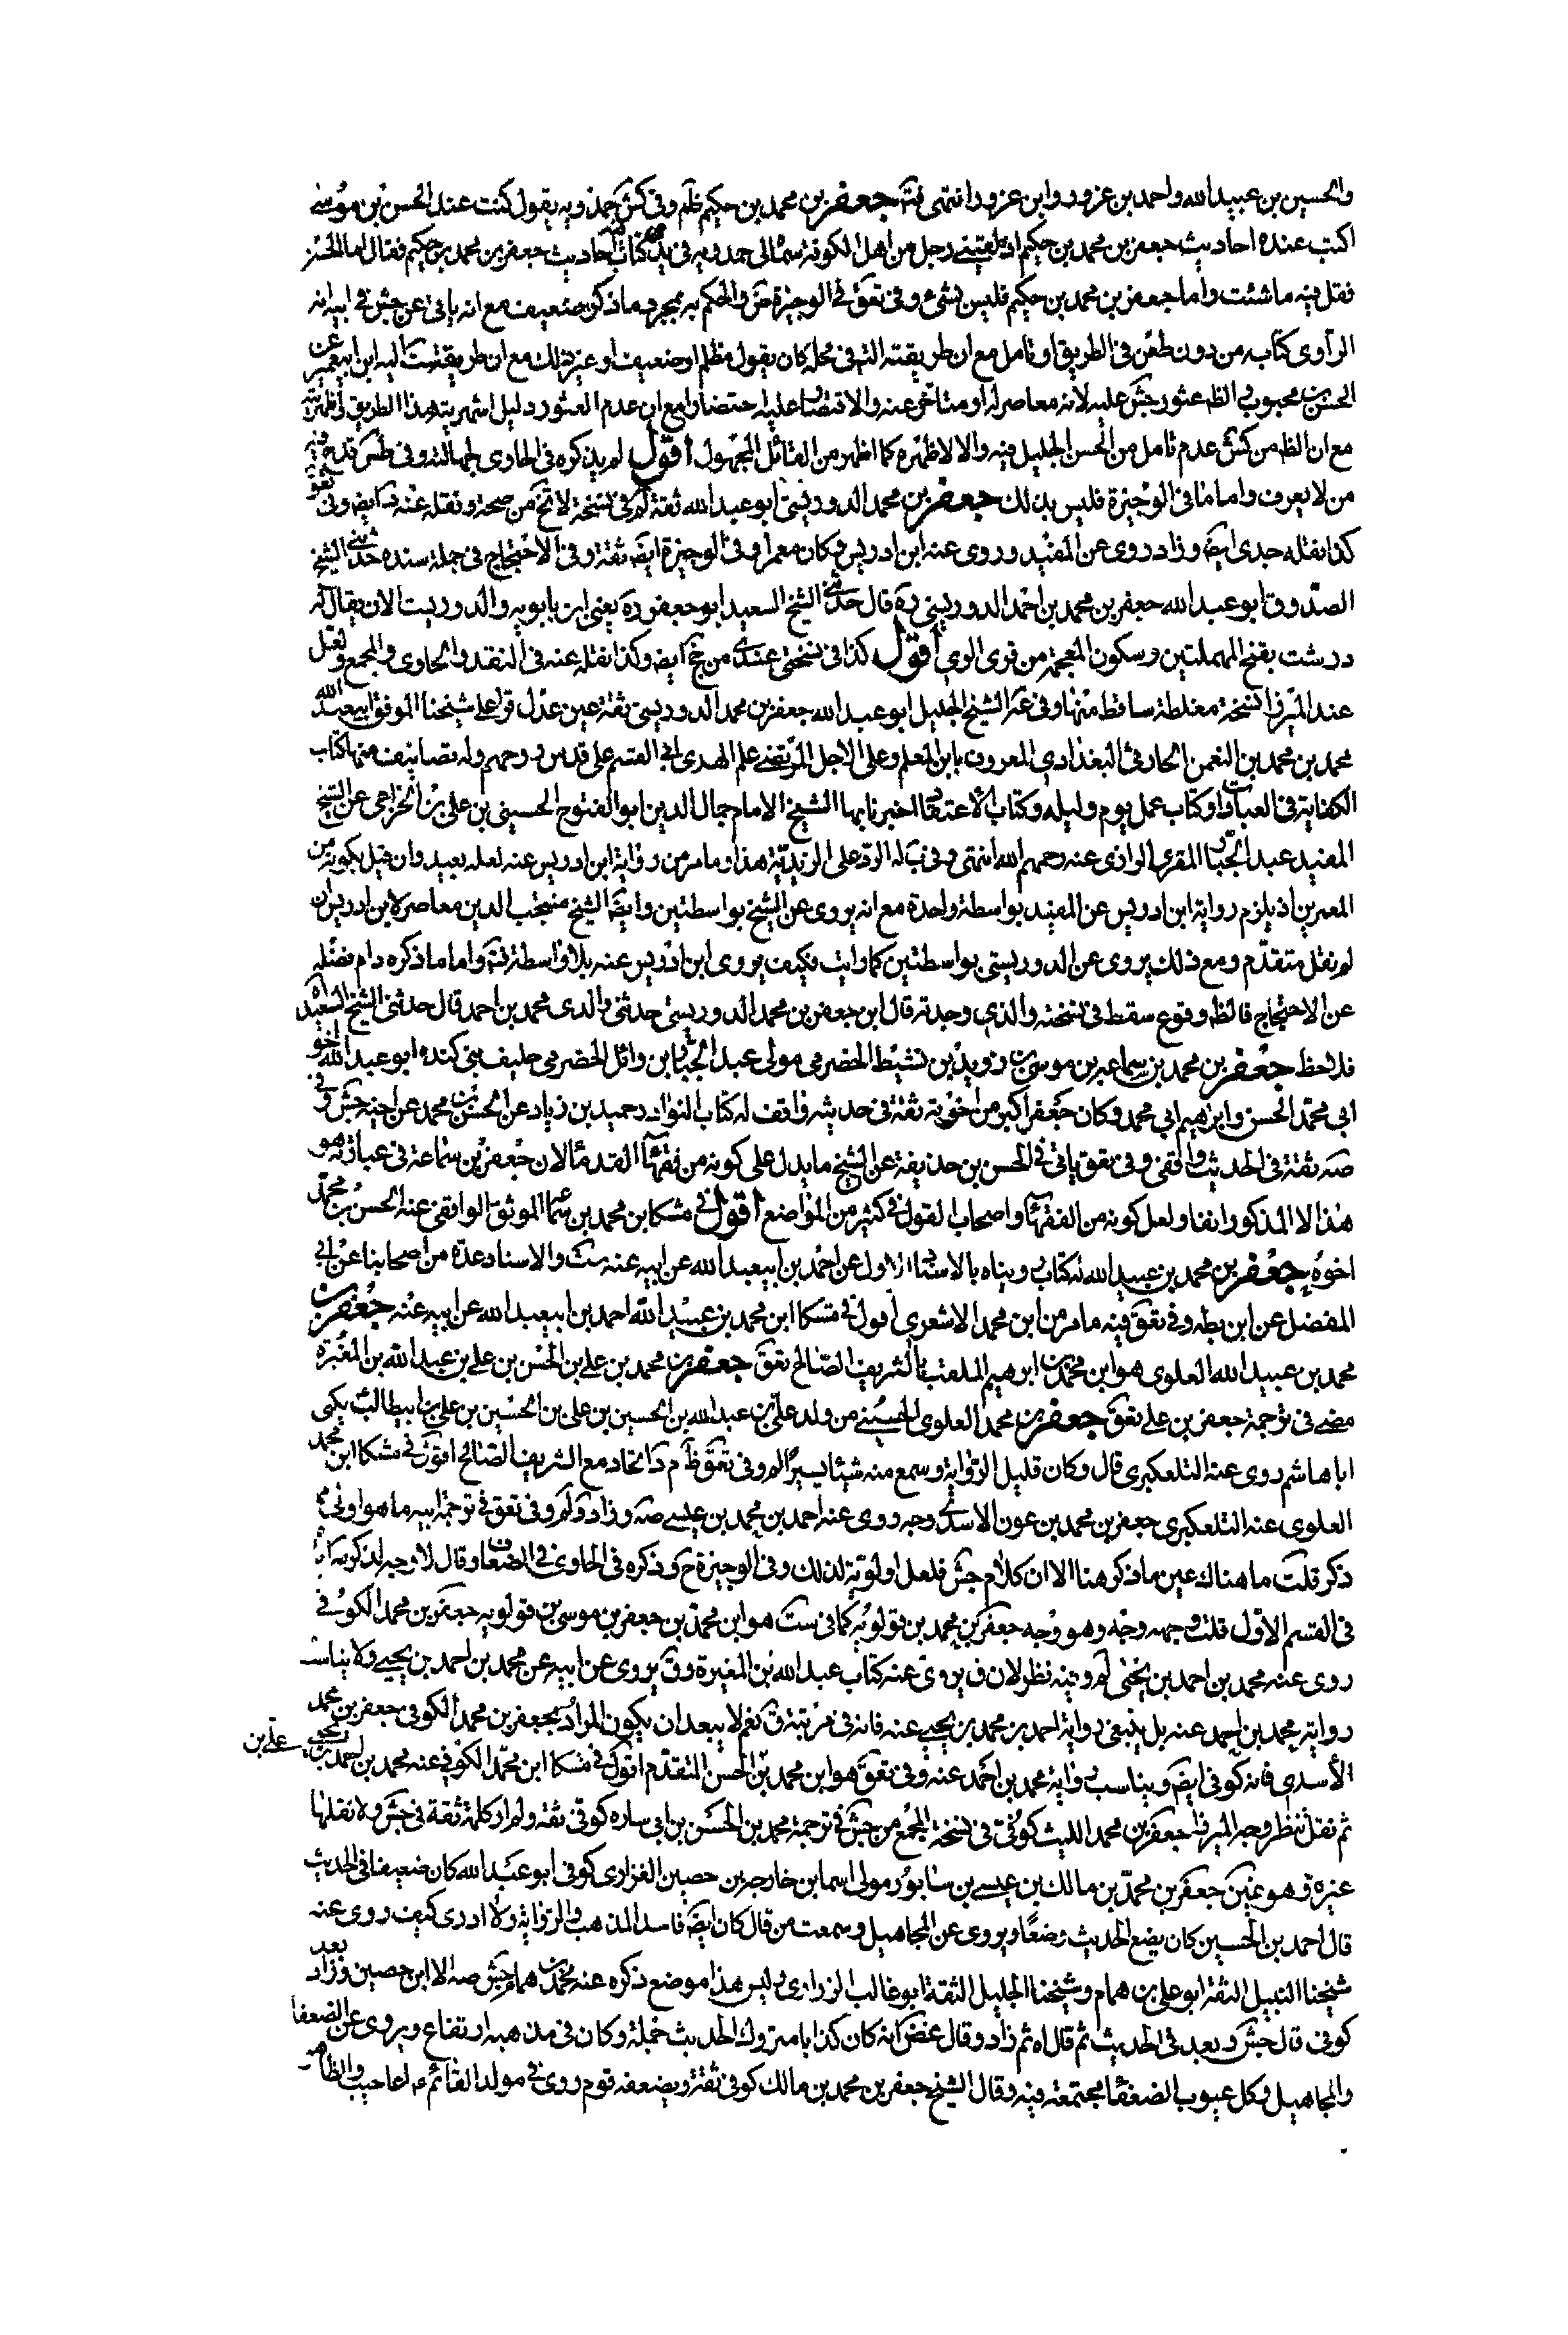 والحسين بن عبيد الله واحمد بن عزور وابن عزور انتهى فتد جعفر بن محمد بن حكيم ظم وفى كش حمدويه يقول كنت عند الحسن بن موسى
اكتب عنده احاديث جعفر بن محمد بن حكيم اذ لقينى رجل من اهل الكوفة سماه لى حمدويه فى يده كتاب احاديث جعفر بن محمد بن حكيم فقال اما الحسن
فقل فيه ما شئت واما جعفر بن محمد بن حكيم فليس بشىء وفى تعق فى الوجيزة ض والحكم به بمجرد ما ذكر ضعيف مع انه ياتى عن جش فى ابيه انه
الراوى كتابه من دون طعن فى الطريق او تامل مع ان طريقته انه فى محله كان يقول مظلم او ضعيف او غير ذلك مع ان طريقة ست اليه ابن ابيعمير عن
الحسن بن محبوب والظ عثور جش عليه لانه معاصر له او متاخر عنه والاقتصار عليه اختصارا مع ان عدم العثور دليل اشهرية هذا الطريق واظهريته
مع ان الظ من كش عدم تامل من الحسن الجليل فيه والا لاظهره كما اظهر من القائل المجهول اقول لم يذكره فى الحاوى لجهالته وفى طس قدح فيه
من لا يعرف واما ما فى الوجيزة فليس بذلك جعفر بن محمد الدوريستى ابو عبد الله ثقة لم وفى نسخة لا تخ من صحة ونقله عنه د ايضا وفى تعق
كذا نقله جدى ايض وزاد روى عن المفيد وروى عنه ابن ادريس وكان معمرا وفى الوجيزة ايض ثقة وفى الاحتجاج فى جملة سنده حدثنى الشيخ
الصدوق ابو عبد الله جعفر بن محمد بن احمد الدوريستى ره قال حدثنى الشيخ السعيد ابو جعفر ره يعنى ابن بابويه والدوريست الان يقال له
درشت بفتح المهملتين وسكون المعجمة من قرى الرى اقول كذا فى نسختى عندى من جخ ايض وكذا نقله عنه فى النقد والحاوى والمجمع ولعل
عند الميرزا نسخة مغلطة ساقط منها وفى عه الشيخ الجليل ابو عبد الله جعفر بن محمد الدوريستى ثقة عين عدل قرا على شيخنا الموفق ابيعبد الله
محمد بن محمد بن النعمن الحارثى البغدادى المعروف بابن المعلم وعلى الاجل المرتضى علم الهدى ابى القسم على قدس روحهم وله تصانيف منها كتاب
الكفاية فى العبادات وكتاب عمل يوم وليله وكتاب الاعتقاد اخبرنا بها الشيخ الامام جمال الدين ابو الفتوح الحسينى بن على بن الخزاعى عن الشيخ
المفيد عبد الجبار المقرى الرازى عنه رحمهم الله انتهى وفى ب له الرد على الزيدية هذا وما مر من رواية ابن ادريس عنه لعله بعيد وان قيل بكونه من
المعمرين اذ يلزم رواية ابن ادريس عن المفيد بواسطة واحدة مع انه يروى عن الشيخ بواسطتين وايضا الشيخ منتجب الدين معاصر لابن ادريس ان
لم نقل متقدم ومع ذلك يروى عن الدوريستى بواسطتين كما رايت فكيف يروى ابن ادريس عنه بلا واسطة فتد واما ما ذكره دام فضله
عن الاحتجاج فالظ وقوع سقط فى نسخته والذى وجدته قال ابن جعفر بن محمد الدوريستى حدثنى والدى محمد بن احمد قال حدثنى الشيخ السعيد اه
فلاحظ جعفر بن محمد بن سماعه بن موسى بن رويد بن نشيط الحضرمى مولى عبد الجبار بن وائل الحضرمى حليف بنى كنده ابو عبد الله اخو
ابى محمد الحسن وابراهيم ابى محمد وكان جعفر اكبر من اخويه ثقة فى حديثه واقف له كتاب النوادر حميد بن زياد عن الحسن بن محمد عن اخيه جش وفى
صه ثقة فى الحديث واقفى وفى تعق ياتى فى الحسن بن حذيفة عن الشيخ ما يدل على كونه من فقهائنا القدماء لان جعفر بن سماعة فى عبارته هو
هذا لا المذكور انفا ولعل كونه من الفقهاء واصحاب القول فى كثير من المواضع اقول فى مشكا ابن محمد بن سماعة الموثق الواقفى عنه الحسن بن محمد
اخوه جعفر بن محمد بن عبيد الله له كتاب رويناه بالاسناد الاول عن احمد بن ابيعبد الله عن ابيه عنه ست والاسناد عدة من اصحابنا عن ابى
المفضل عن ابن بطه وفى تعق فيه ما مر من ابن محمد الاشعرى اقول فى مشكا ابن محمد بن عبيد الله احمد بن ابيعبد الله عن ابيه عنه جعفر بن
محمد بن عبيد الله العلوى هو ابن محمد بن ابرهيم الملقب بالشريف الصالح تعق جعفر بن محمد بن على بن الحسن بن على بن عبد الله بن المغيرة
مضى فى ترجمة جعفر بن على تعق جعفر بن محمد العلوى الحسينى من ولد على بن عبد الله بن الحسين بن على بن الحسين بن على بن ابيطالب يكنى
ابا هاشم روى عنه التلعكبرى قال وكان قليل الرواية وسمع منه شيئا يسيرا لم وفى تعق ظ م د اتحاده مع الشريف الصالح اقول فى مشكا ابن محمد
العلوى عنه التلعكبرى جعفر بن محمد بن عون الاسدى وجه روى عنه احمد بن محمد بن عيسى صه وزاد د لم وفى تعق فى ترجمة ابيه ما هو اولى مما
ذكر قلت ما هناك عين ما ذكر هنا الا ان كلام جش فلعل اولويته لذلك وفى الوجيزة ح وذكره فى الحاوى فى الضعاف وقال لا وجه لذكره له
فى القسم الاول قلت وجهه وجه وهو وجه جعفر بن محمد بن قولويه كما فى ست هو ابن محمد بن جعفر بن موسى بن قولويه جعفر بن محمد الكوفى
روى عنه محمد بن احمد بن يحيى لم وفيه نظر لان ف يروى عنه كتاب عبد الله بن المغيرة وق يروى عن ابيه عن محمد بن احمد بن يحيى ولا يناسب
رواية محمد بن احمد عنه بل ينبغى رواية احمد بن محمد بن يحيى عنه فانه فى مرتبة ق نعم لا يبعد ان يكون المراد بجعفر بن محمد الكوفى جعفر بن محمد
الأسدى فانه كوفى ايض ويناسب رواية محمد بن احمد عنه وفى تعق هو ابن محمد بن الحسن المتقدم اقول فى مشكا ابن محمد الكوفى عنه محمد بن احمد بن يحيى
ثم نقل تنظر وجه الميرزا جعفر بن محمد الليث كوفى فى نسخة المجمع من جش فى ترجمة محمد بن الحسن بن ابى ساره كوفى ثقة ولم ار كلمة ثقة فى جش ولا نقلها
غيره وهو غين جعفر بن محمد بن مالك بن عيسى بن سابور مولى اسما بن خارجه بن حصين الفزارى كوفى ابو عبد الله كان ضعيفا فى الحديث
قال احمد بن الحسين كان يضع الحديث وضعا ويروى عن المجاهيل وسمعت من قال كان ايض فاسد المذهب والرواية ولا ادرى كيف روى عنه
شيخنا النبيل الثقة ابو على بن همام وشيخنا الجليل الثقة ابو غالب الزرارى وليس هذا موضع ذكره عنه محمد بن همام جش صه الا ابن حصين وزاد بعد
كوفى قال جش وبعد فى الحديث ثم قال اه ثم زاد وقال غض انه كان كذابا متروك الحديث جملة وكان فى مذهبه ارتفاع ويروى عن الضعفا
والمجاهيل وكل عيوب الضعفاء مجتمعة فيه وقال الشيخ جعفر بن محمد بن مالك كوفى ثقة ويضعفه قوم روى فى مولد القائم ع اعاجيب والظاهر
على بن